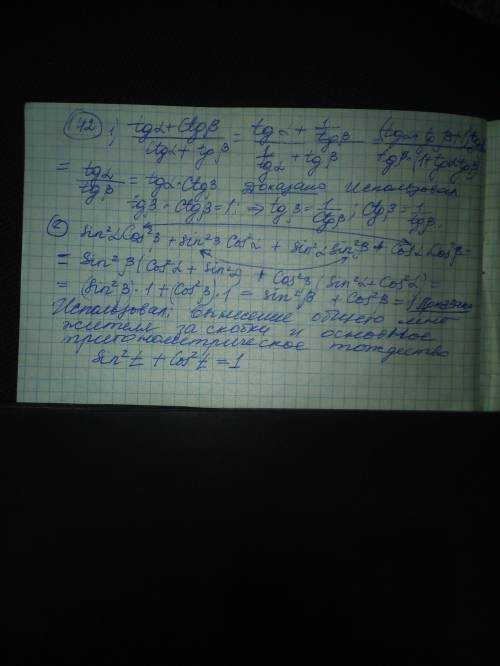 142 1) (tgα + ctgβ)/(ctgα + tgβ) = (tgα + 1/tgβ)/(1/tgα + tgβ) (tgα tgβ+1) tgα / tgβ (1+tgαtgβ)
= tgα/tgβ = tgα · Ctgβ Доказано Использовал
tgβ · Ctgβ = 1; ⇒ tgβ = 1/Ctgβ; Ctgβ = 1/tgβ.
2) Sin²α Cos²β + sin²β Cos²α + Sin²α Sin²β + Cos²α Cos²β =
= Sin²β (Cos²α + Sin²α) + Cos²β (Sin²α + Cos²α) =
= (Sin²β) · 1 + (Cos²β) · 1 = Sin²β + Cos²β = 1 Доказано
Использовал: вынесение общего мно
жителя за скобки и основное
тригонометрическое тождество
Sin²t + Cos²t = 1